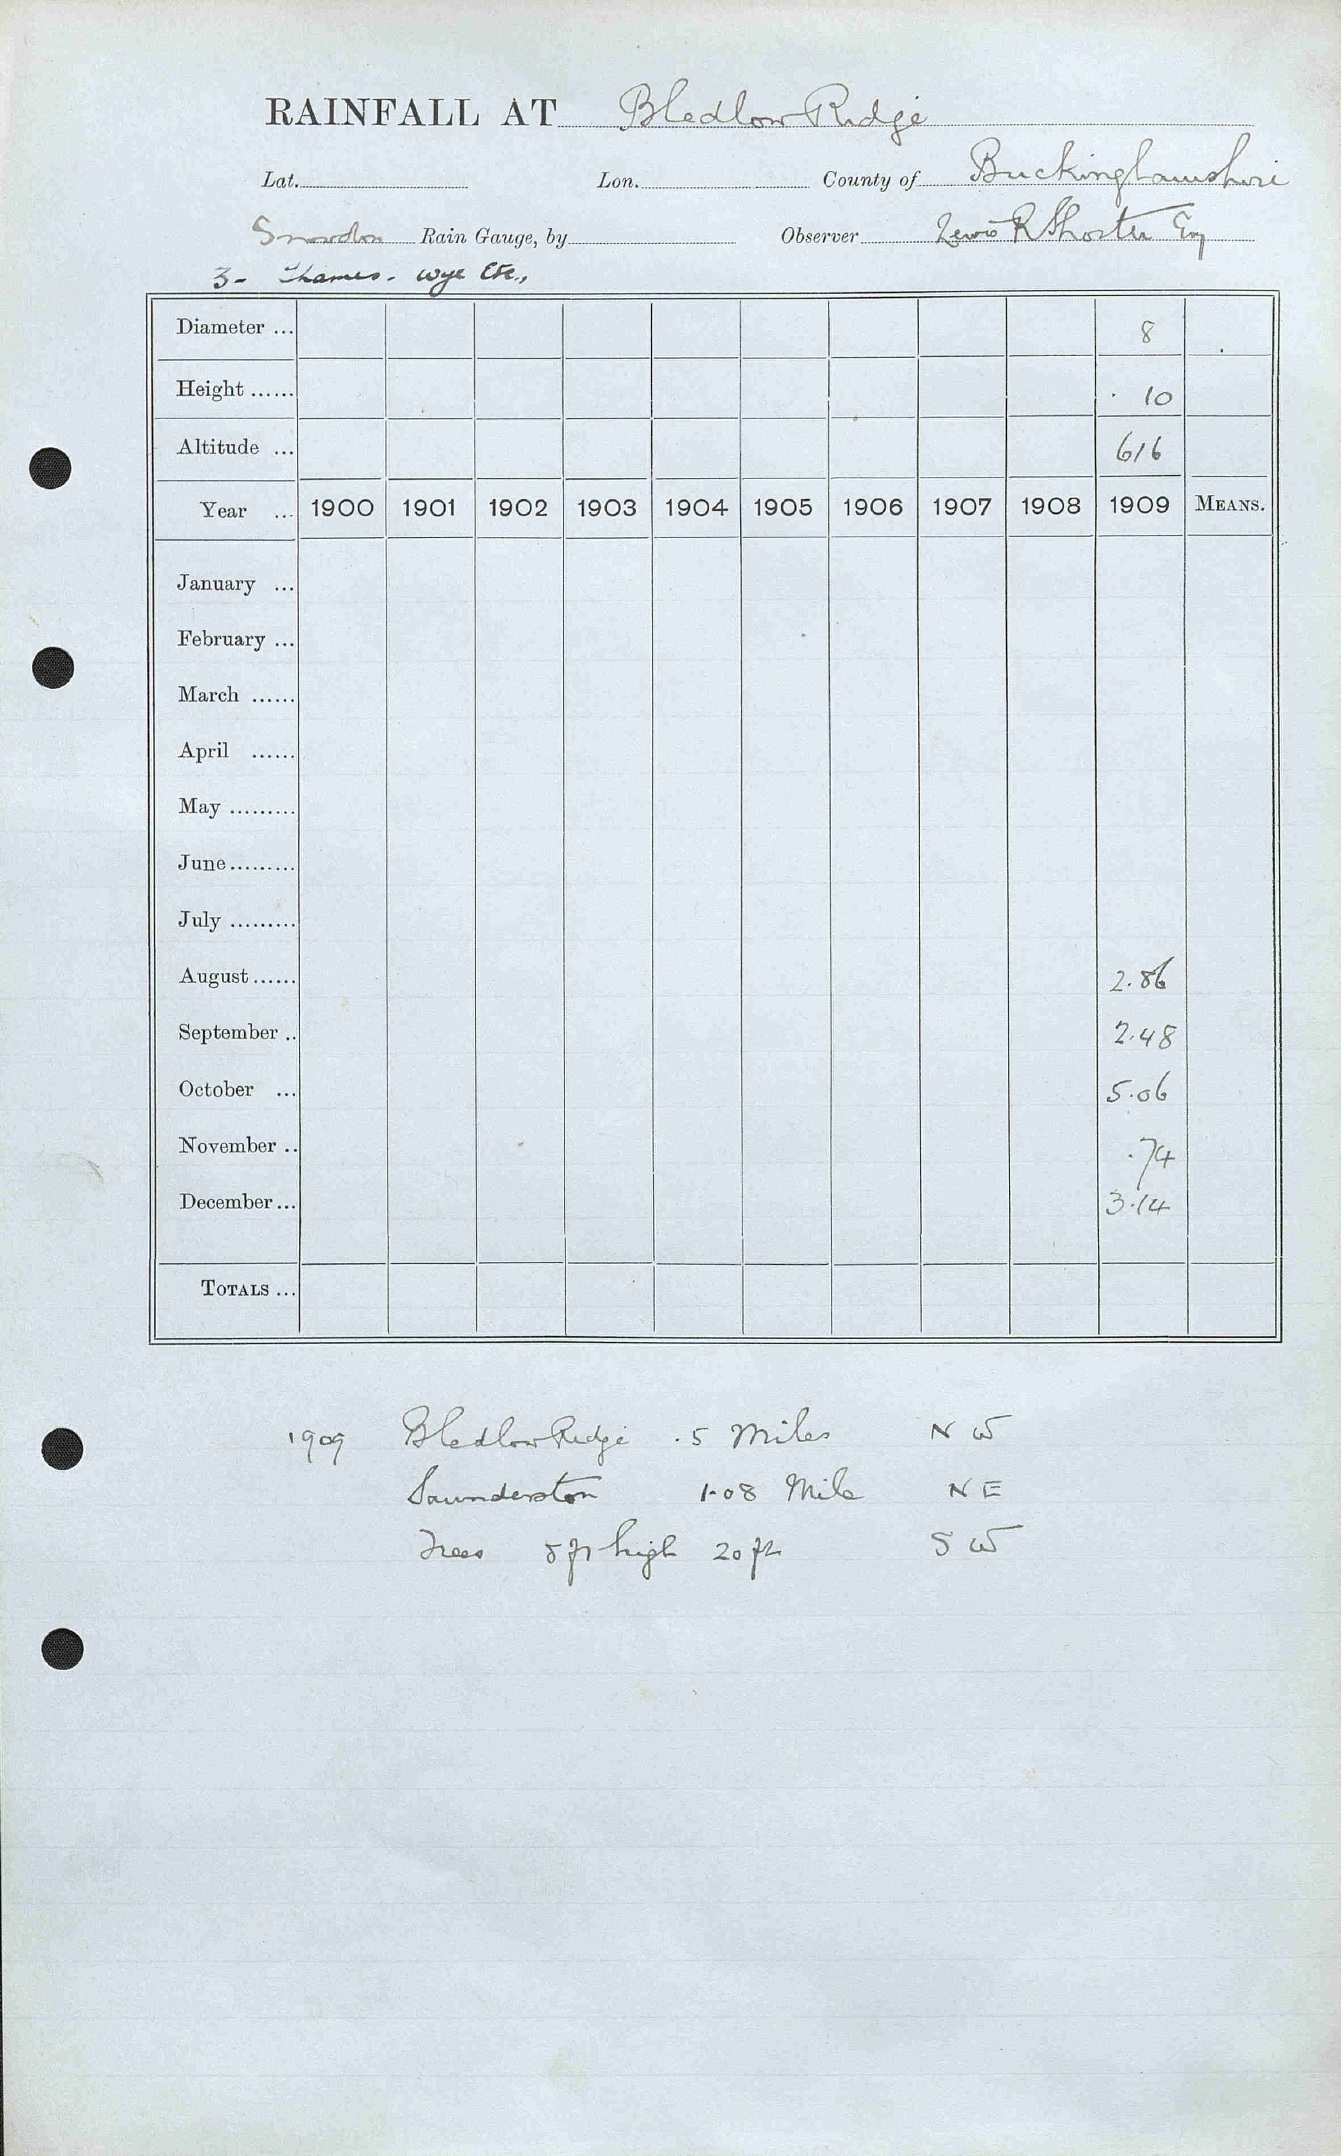 RAINFALL AT Bledlow Ridge
Lat. Lon. County of Buckinghamshire
Snowdon Rain Gauge, by Observer Lewis R Shorter Esq
3 - Thames - Wye Etc.,
Diameter ... 8
Height ...... 10
Altitude ... 616
Year ... 1900 1901 1902 1903 1904 1905 1906 1907 1908 1909 MEANS.
January ...
February ...
March ......
April ......
May .........
June .........
July .........
August ...... 2.86
September .. 2.48
October ... 5.06
November .. .74
December ... 3.14
TOTALS ...
1909 Bledlow Ridge .5 Miles N W
Saunderton 1.08 Mile N E
Trees 8 ft high 20 ft S W